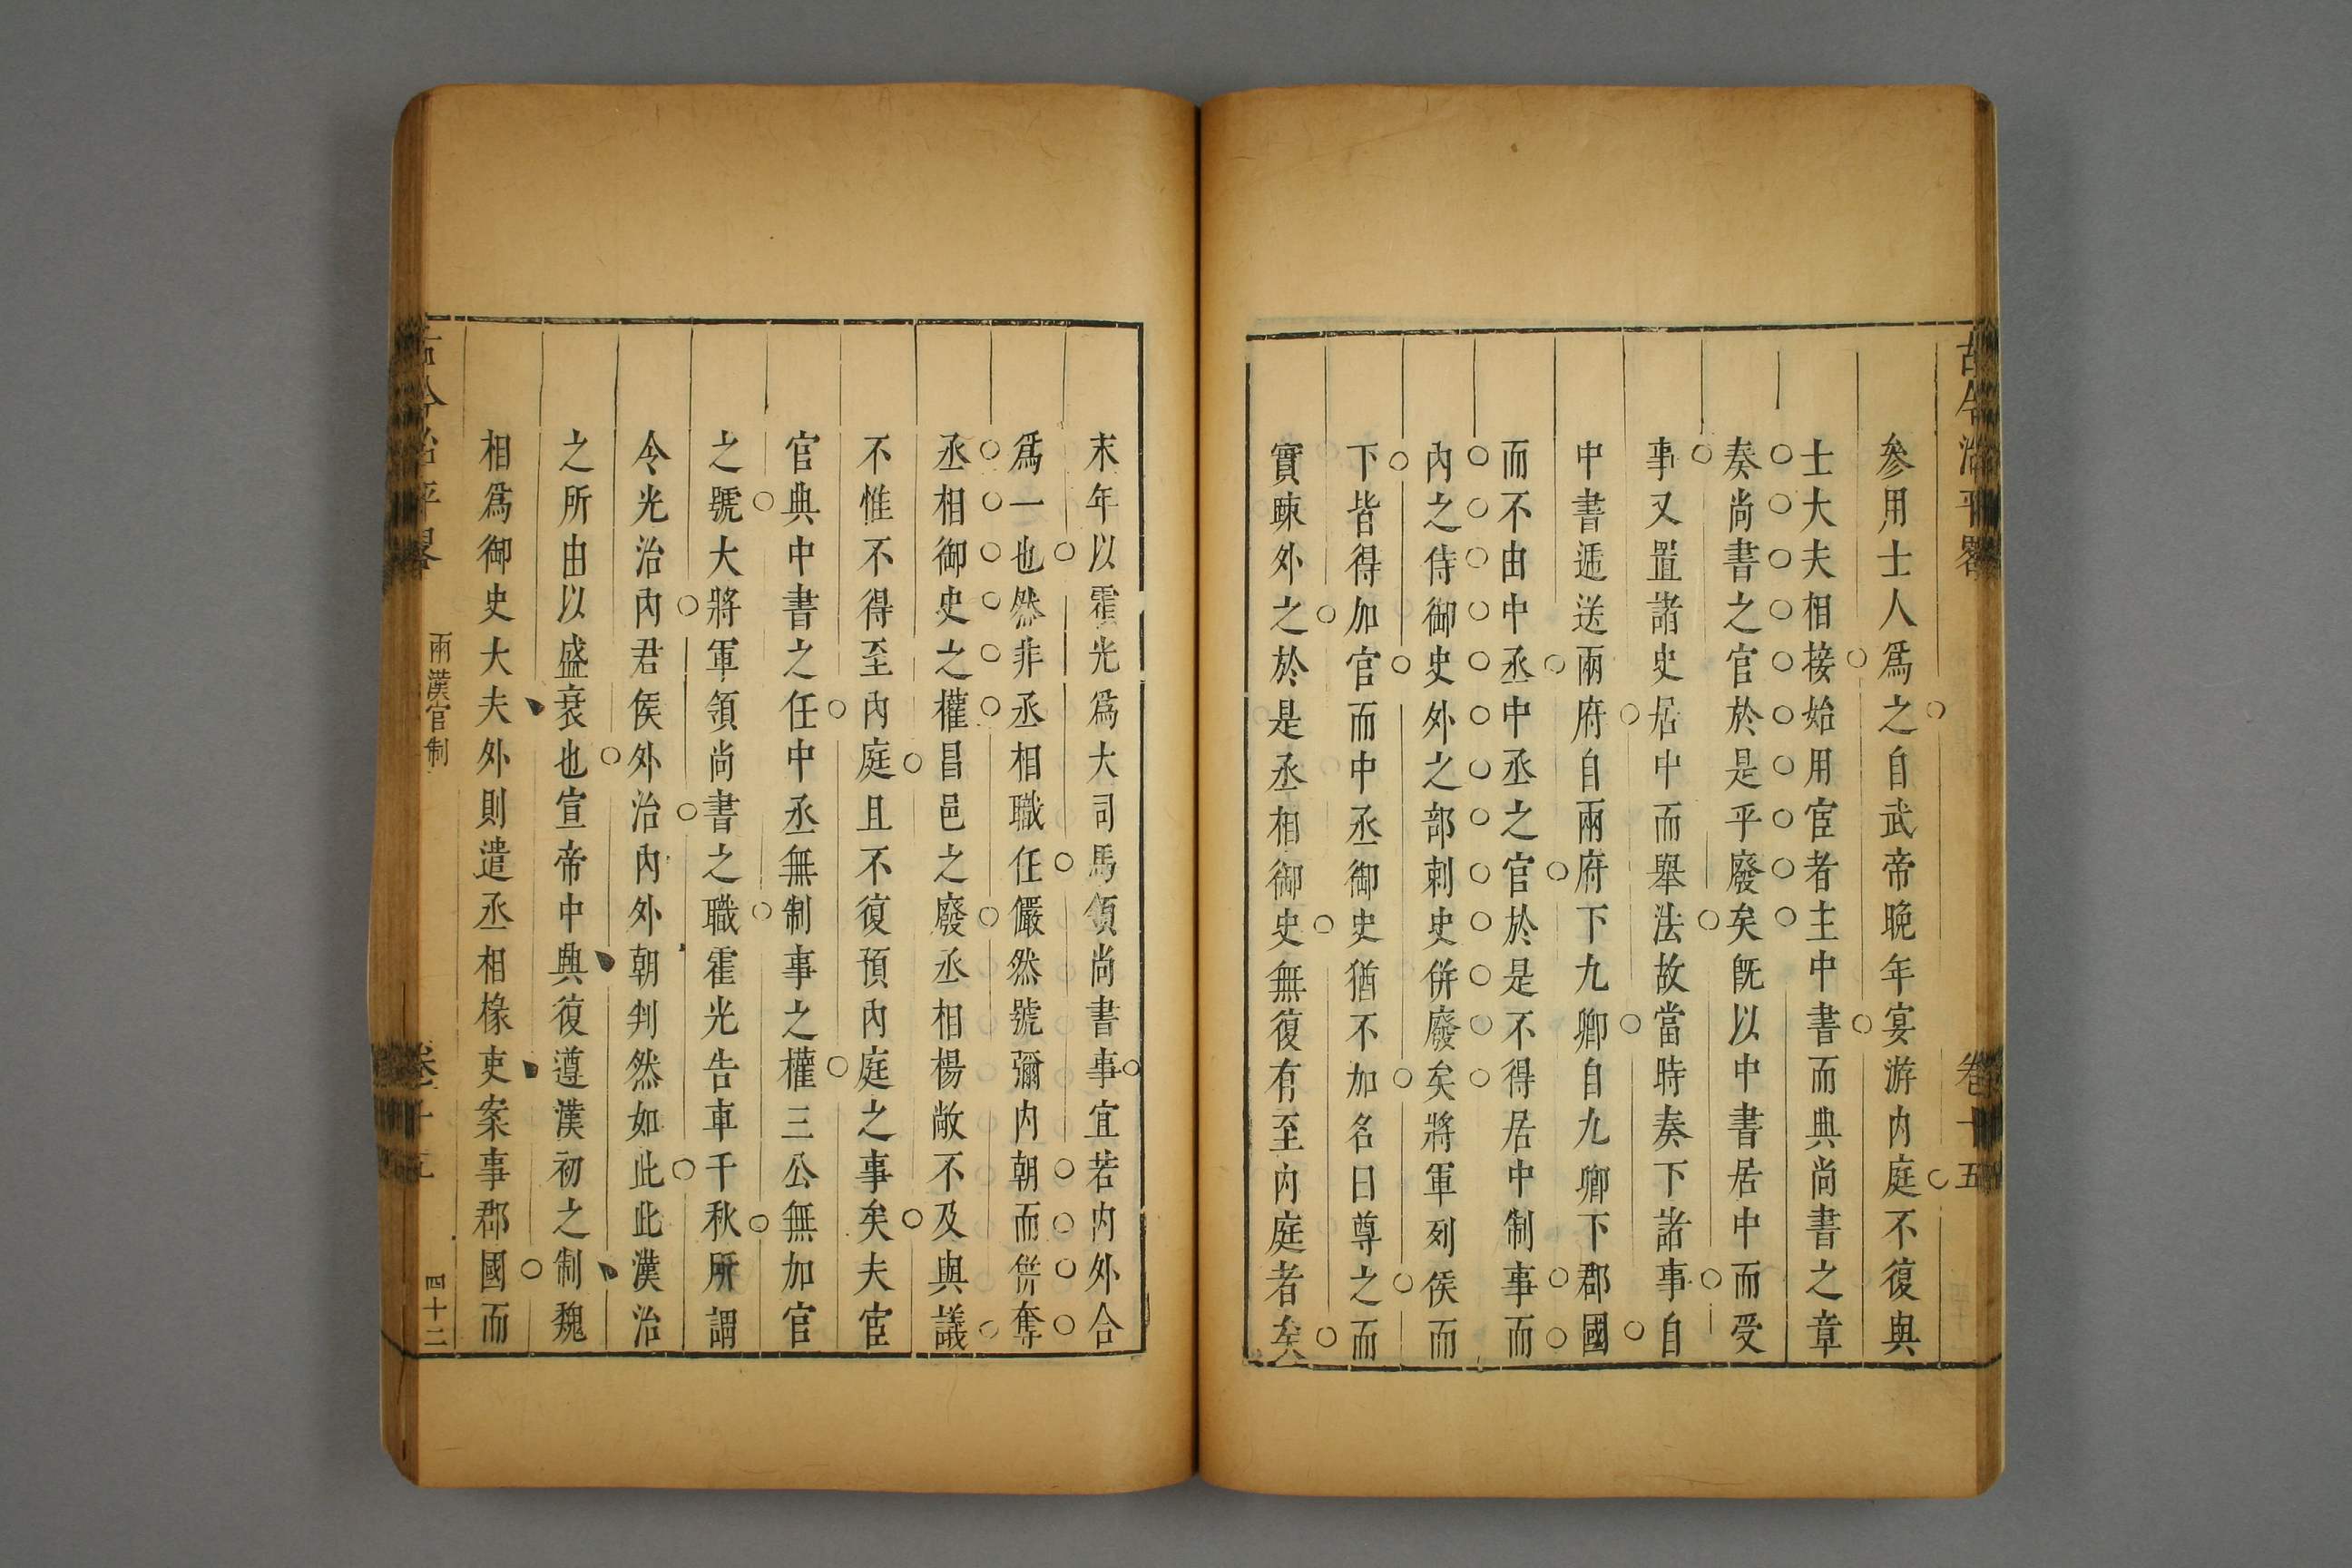 古今治平畧
卷十五
參用士人爲之自武帝晚年宴游内庭不復與
士大夫相接始用宦者主中書而典尚書之章
奏尚書之官於是乎廢矣旣以中書居中而受
事又置諸史居中而舉法故當時奏下諸事自
中書遞送兩府自兩府下九卿自九卿下郡國
而不由中丞中丞之官於是不得居中制事而
內之侍御史外之部刺史併廢矣將軍列侯而
下皆得加官而中丞御史猶不加名曰尊之而
實踈外之於是丞相御史無復有至内庭者矣
末年以霍光爲大司馬領尚書事宜若内外合
爲一也然非丞相職任儼然號彌内朝而併奪
丞相御史之權昌邑之廢丞相楊敞不及與議
不惟不得至內庭且不復預內庭之事矣夫宦
官典中書之任中丞無制事之權三公無加官
之號大將軍領尚書之職霍光告車千秋所謂
令光治內君侯外治內外朝判然如此此漢治
之所由以盛衰也宣帝中興復遵漢初之制魏
相爲御史大夫外則遣丞相椽吏案事郡國而
古今治平畧
兩漢官制
卷十五
四十二